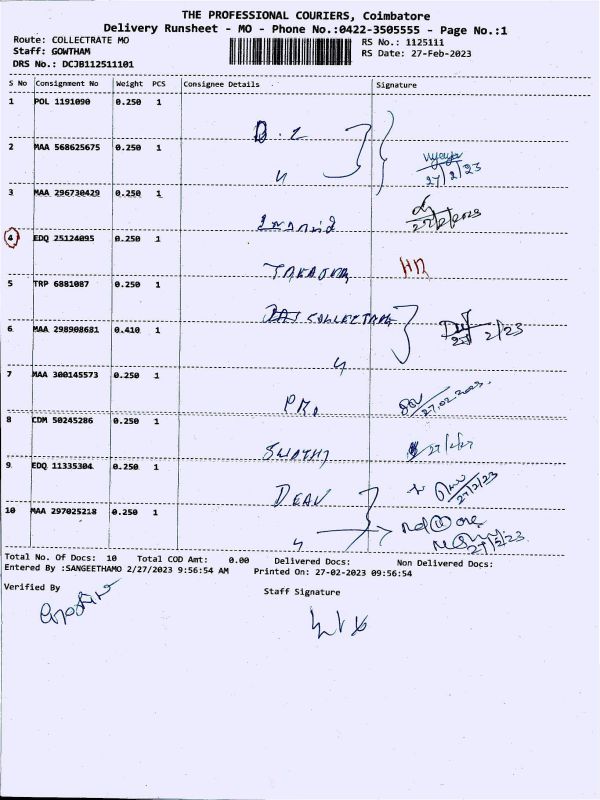 THE PROFESSIONAL COURIERS, Coimbatore
Delivery Runsheet - MO - Phone No.:0422-3505555 - Page No.:1
Route: COLLECTRATE MO
RS No.: 1125111
Staff: GOWTHAM
RS Date: 27-Feb-2023
DRS No.: DCJB112511101
S No Consignment No Weight PCS Consignee Details Signature
1 POL 1191090 0.250 1
2 MAA 568625675 0.250 1
27/2/23
3 MAA 296730429 0.250 1
27/2/2023
4 EDQ 25124095 0.250 1
HN
5 TRP 6881087 0.250 1
COLLECTRATE
6 MAA 298908681 0.410 1
2/23
7 MAA 300145573 0.250 1
PRO
27.02.2023
8 CDM 50245286 0.250 1
SWATHI
9 EDQ 11335304 0.250 1
DEAN
27/2/23
10 MAA 297025218 0.250 1
27/2/23
Total No. Of Docs: 10 Total COD Amt: 0.00 Delivered Docs: Non Delivered Docs:
Entered By :SANGEETHAMO 2/27/2023 9:56:54 AM Printed On: 27-02-2023 09:56:54
Verified By
Staff Signature